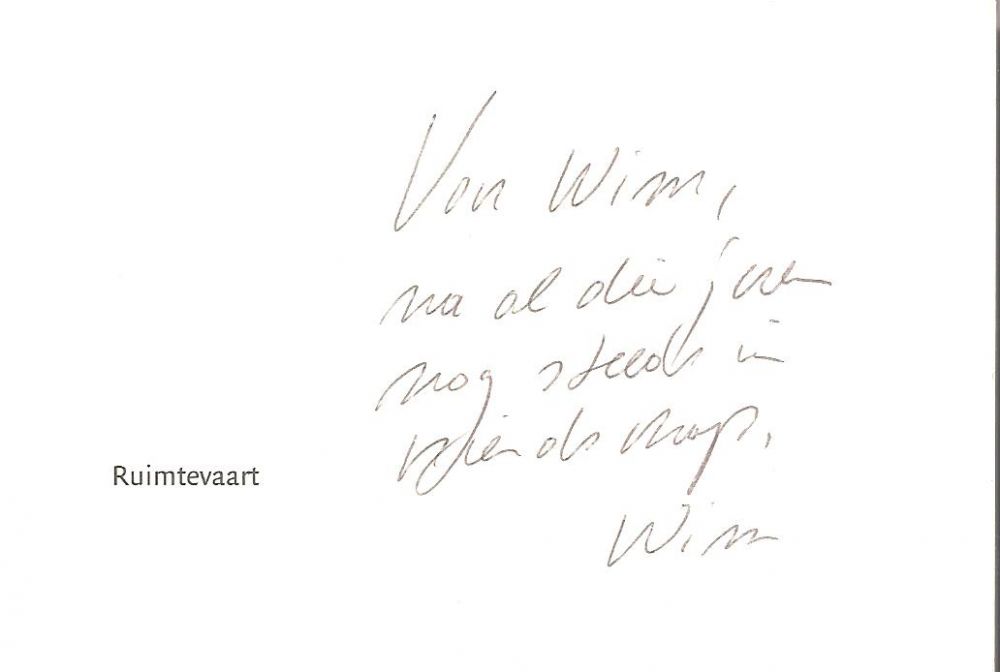 Wim,
na al die jaren
nog steeds in
vriendschap,
Wim
Ruimtevaart